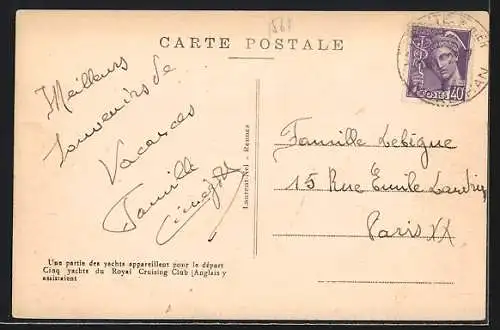 1561
CARTE POSTALE
Meilleurs
Souvenirs de
Vacances
Famille
Laurent-Nel - Rennes
Famille Lebègue
15 Rue Emile Landrin
Paris XX
Une partie des yachts appareillent pour le départ
Cinq yachts du Royal Cruising Club (Anglais) y
assistaient
40